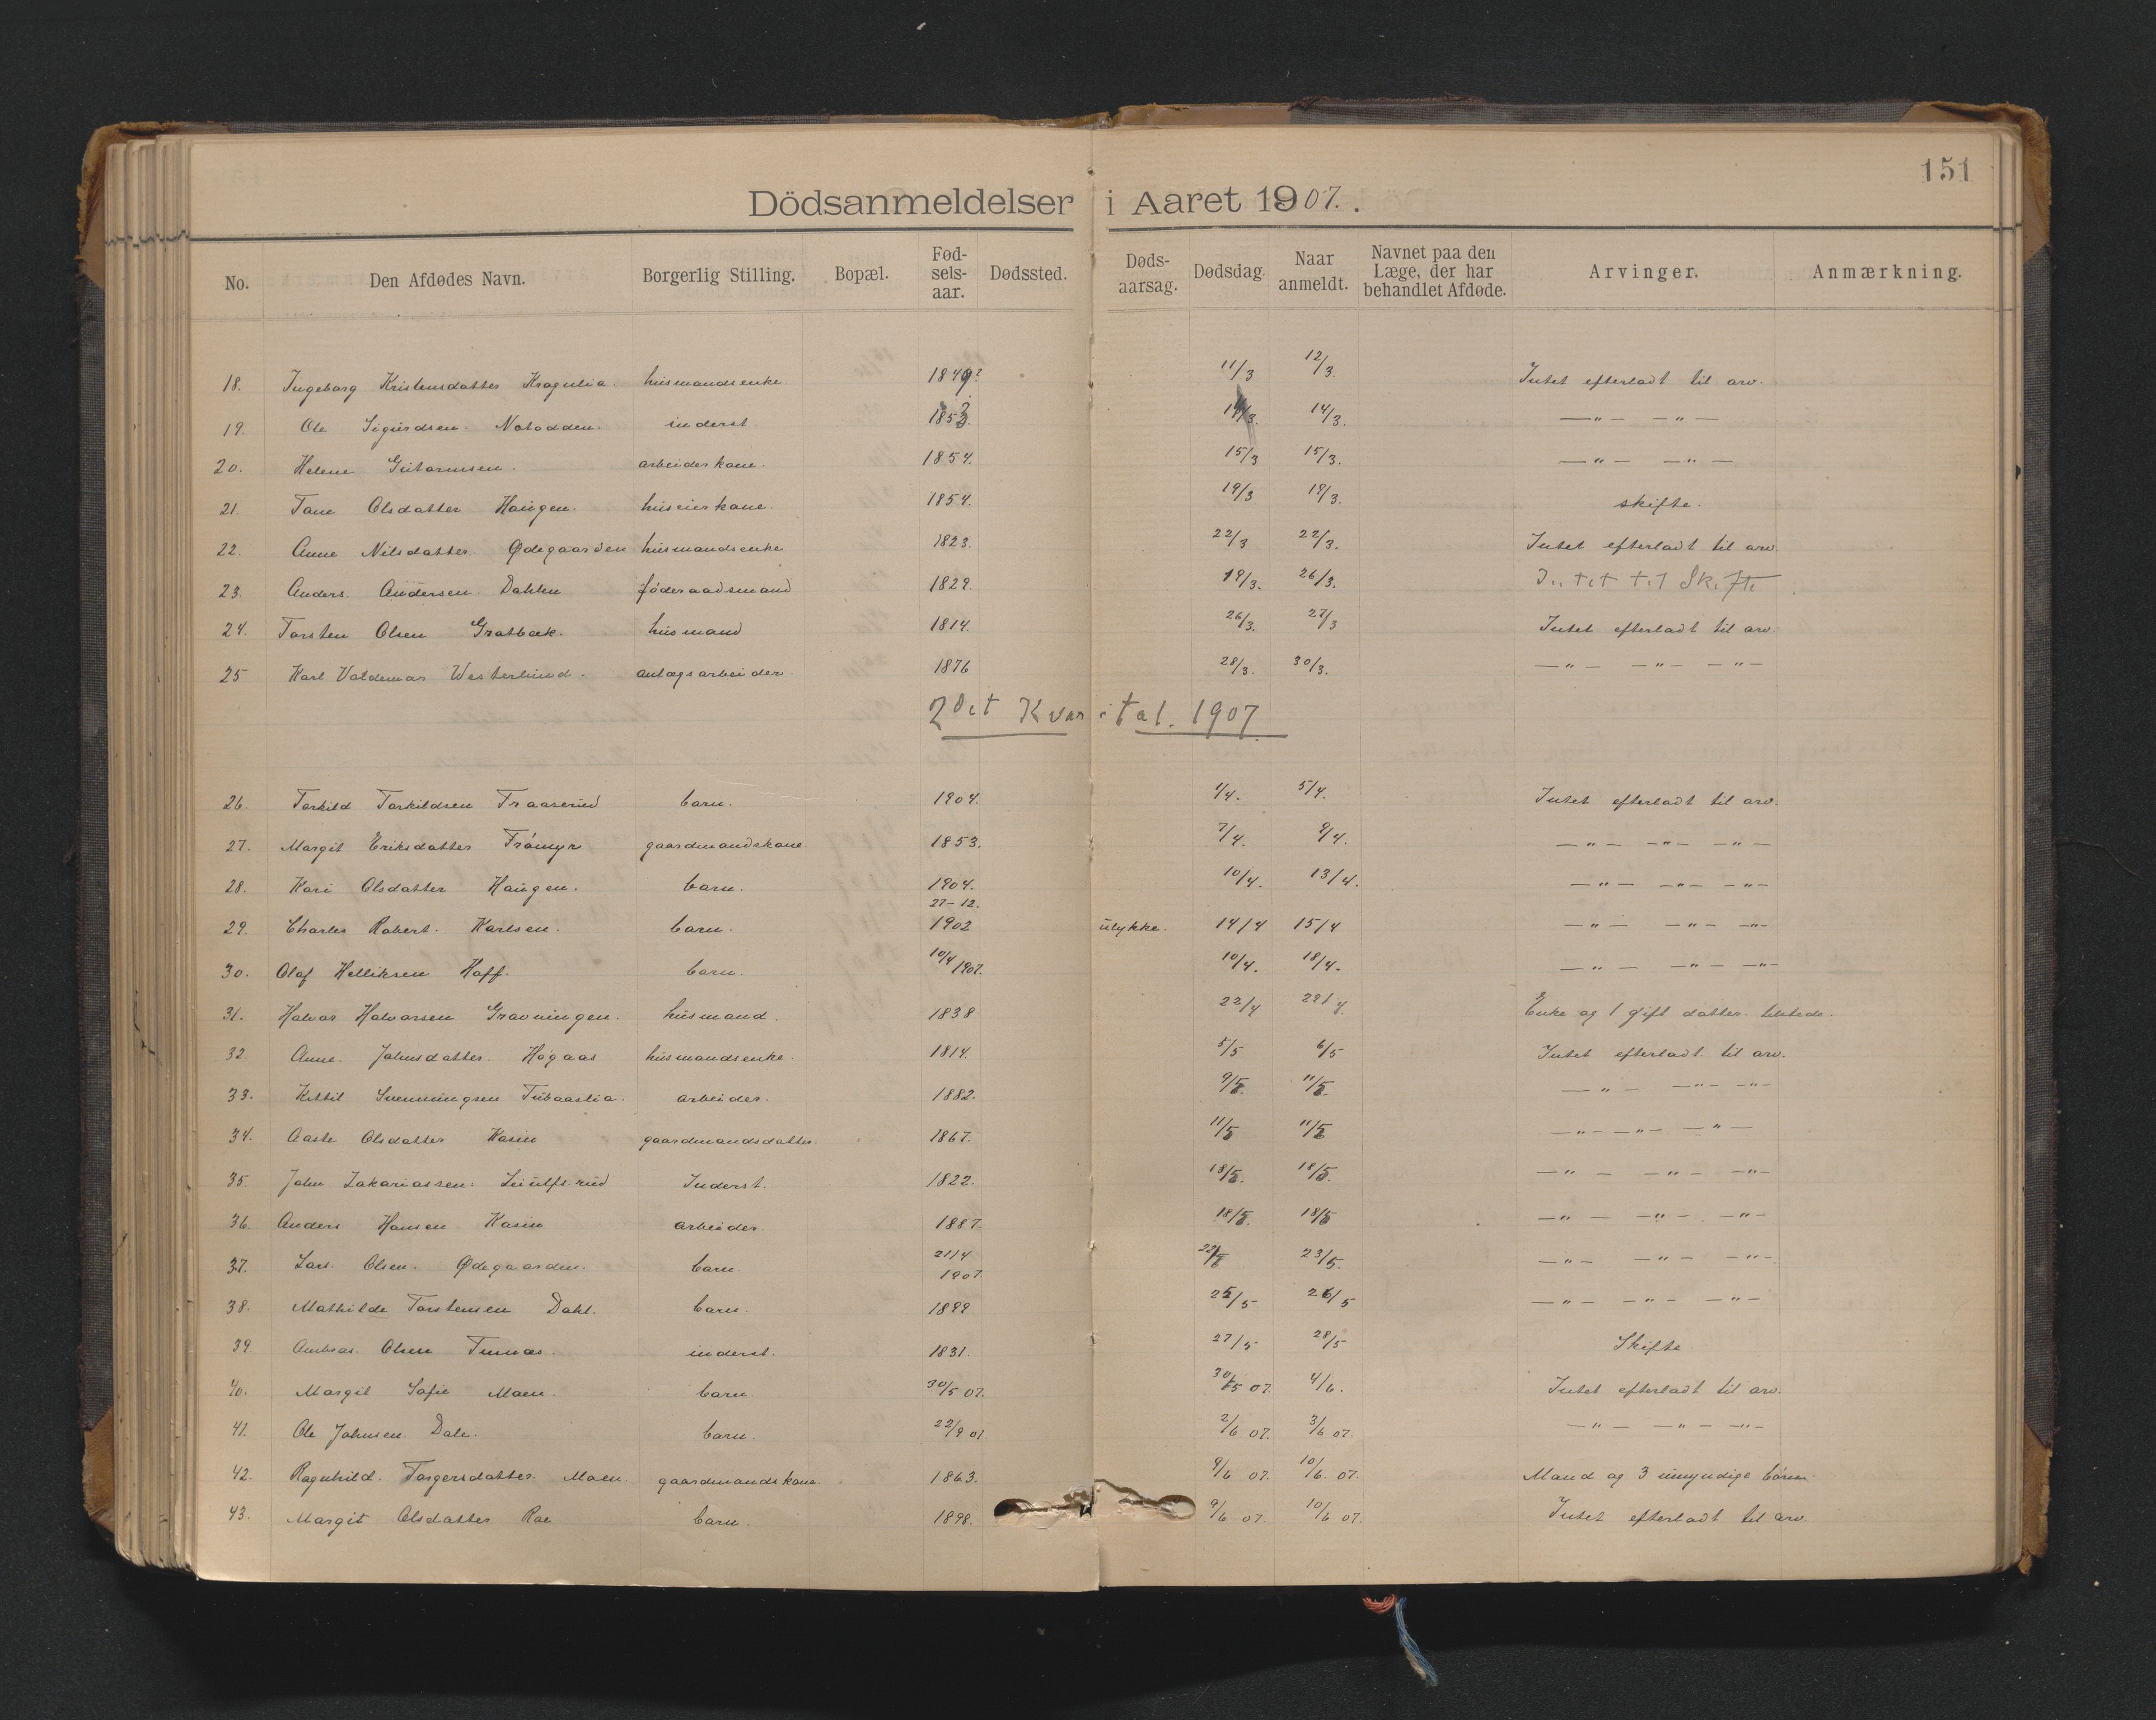 151
Dödsanmeldelser i Aaret 1907.
No. Den Afdødes Navn. Borgerlig Stilling. Bopæl. Fød-sels-aar. Dødssted. Døds-aarsag. Dødsdag. Naar anmeldt. Navnet paa den Læge, der har behandlet Afdøde. Arvinger. Anmærkning.
18. Ingeborg Kristensdatter husmandsenke 1849? 11/3 12/3. Intet efterladt til arv.
19. Ole Sigurdsen. Notodden. inderst 1853. 14/3. 14/3. —"— —"—
20. Helene Gutormsen. arbeiderkone. 1854. 15/3 15/3. —"— —"—
21. Tone Olsdatter Haugen. huseierkone. 1854. 19/3 19/3. skifte.
22. Anne Nilsdatter Ødegaarden husmandsenke 1823. 22/3 22/3. Intet efterladt til arv.
23. Anders Andersen Dahlen føderaadsmand 1829. 19/3. 26/3. Intet til Skifte
24. Torsten Olsen Gratbæk. husmand 1814. 26/3. 27/3 Intet efterladt til arv.
25 Karl Valdemar Westerlund. anlægsarbeider. 1876 28/3. 30/3. —"— —"— —"—
2det Kvartal. 1907
26. Torkild Torkildsen Traaserud barn. 1904. 4/4. 5/4. Intet efterladt til arv.
27. Margit Eriksdatter gaardmandskone. 1853. 7/4. 9/4. —"— —"— —"—
28. Kari Olsdatter Haugen. barn. 1904. 10/4. 13/4. —"— —"— —"—
29. Charles Robert. Karlsen. barn. 27-12. 1902 ulykke. 14/4 15/4 —"— —"— —"—
30. Olaf Helliksen Hoff. barn. 10/4 1907. 10/4. 18/4. —"— —"— —"—
31. Halvor Halvorsen Gravningen. husmand. 1838 22/4 22/4. Enke og 1 gift datter.
32. Anne Johnsdatter. Hogaas husmandsenke. 1814. 5/5 6/5 Intet efterladt til arv.
33. Kittil Svenningsen arbeider. 1882. 9/5. 11/5. —"— —"— —"—
34. Aaste Olsdatter Kasin gaardmandsdatter. 1867. 11/5 11/5 —"— —"— —"—
35. John Zakariassen. Inderst. 1822. 18/5. 18/5. —"— —"— —"—
36. Anders Hansen Kasin arbeider. 1887. 18/5. 18/5 —"— —"— —"—
37. Lars Olsen. Ødegaarden. barn 21/4 1907. 22/5 23/5. —"— —"— —"—
38. Mathilde Torstensen Dahl. barn. 1899 25/5 26/5 —"— —"— —"—
39. Andreas Olsen inderst. 1831. 27/5 28/5 Skifte
40. Margit Sofie Moen. barn 30/5 07. 30/5 07. 4/6. Intet efterladt til arv.
41. Ole Johnsen. Dale. barn. 22/9 01. 2/6 07. 3/6 07. —"— —"— —"—
42. Ragnhild. Torgersdatter. Moen. gaardmandskone 1863. 9/6 07. 10/6. 07. Mand og 3 umyndige børn.
43. Margit Olsdatter Roe barn. 1898. 9/6 07. 10/6 07. Intet efterladt til arv.